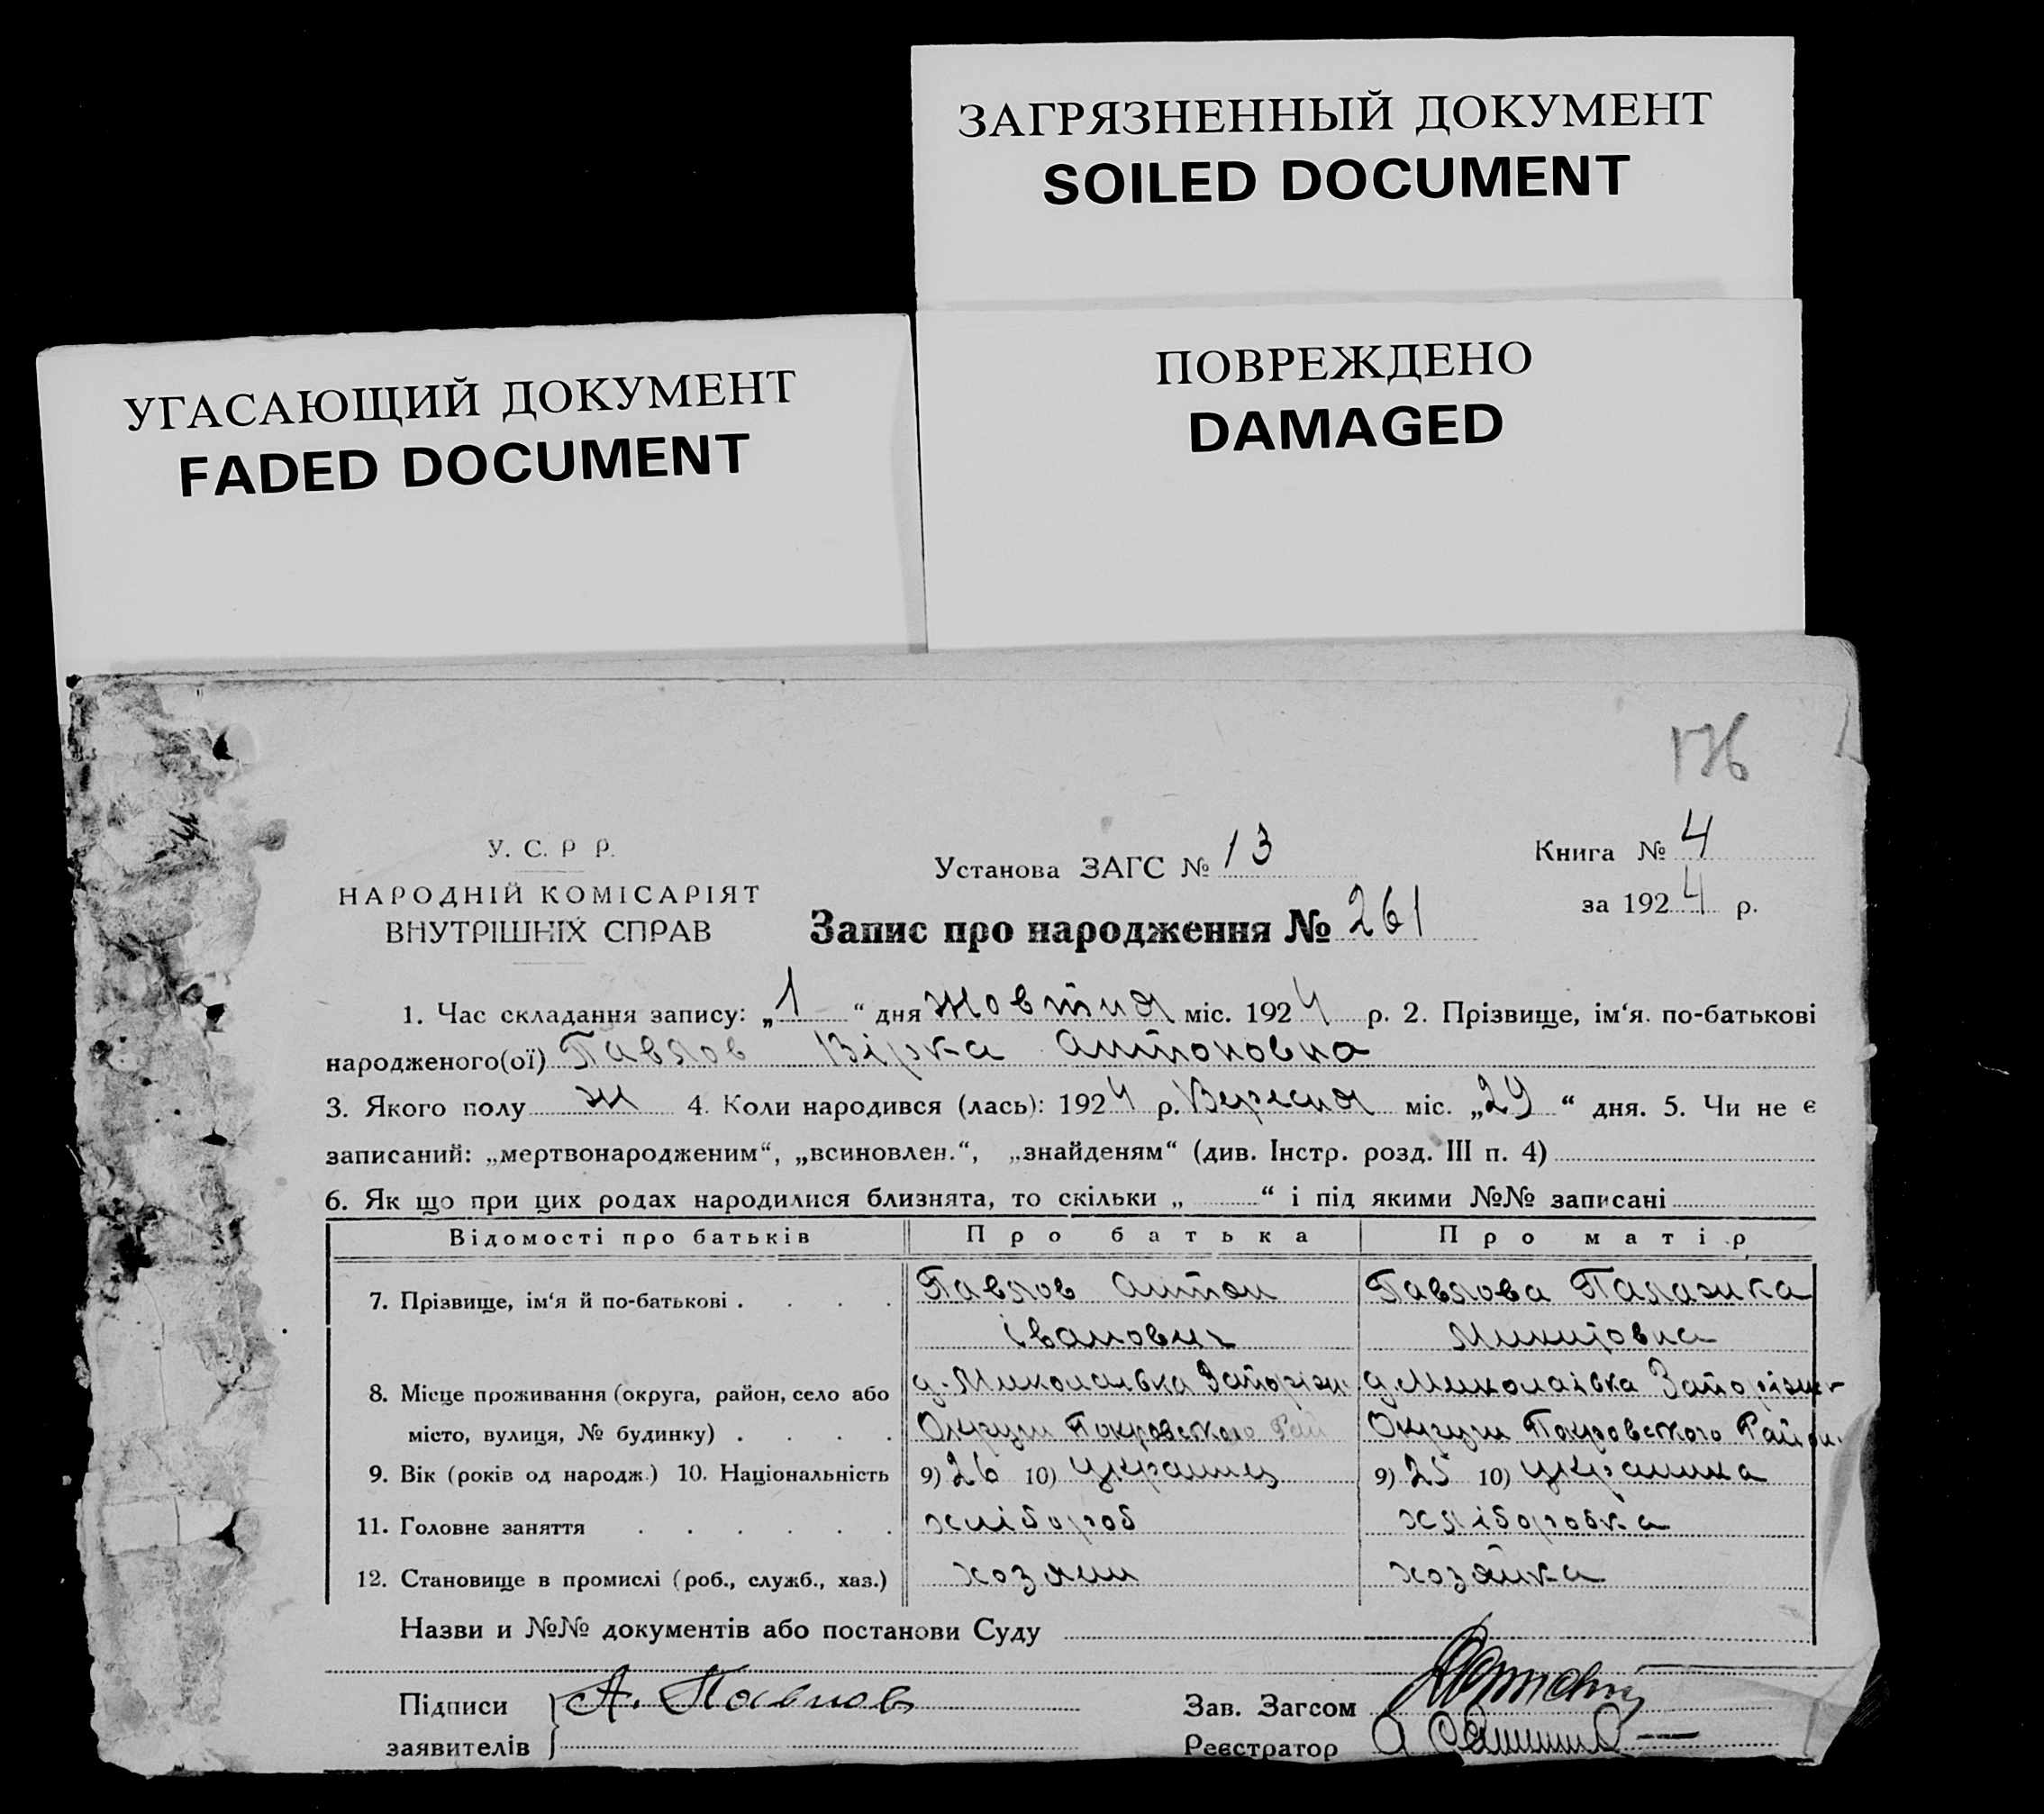 ЗАГРЯЗНЕННЫЙ ДОКУМЕНТ
SOILED DOCUMENT
УГАСАЮЩИЙ ДОКУМЕНТ
FADED DOCUMENT
ПОВРЕЖДЕНО
DAMAGED
176
У. С. Р Р.
НАРОДНІЙ КОМІСАРІЯТ
ВНУТРІШНІХ СПРАВ
Установа ЗАГС № 13
Запис про народження № 261
Книга № 4
за 1924 р.
1. Час складання запису: „1“ дня Жовтня міс. 1924 р. 2. Прізвище, ім‘я. по-батькові
народженого(ої) Павлов Вірка Антоновна
3. Якого полу ж 4. Коли народився (лась): 1924 р. Вересня міс. „29“ дня. 5. Чи не є
записаний: „мертвонародженим“, „всиновлен.“, „знайденям“ (див. Інстр. розд. III п. 4)
6. Як що при цих родах народилися близнята, то скільки „ “ і під якими №№ записані
Відомості про батьків Про батька Про матір
7. Прізвище, ім‘я й по-батькові . . . . Павлов Антон Павлова Палажка
Іванович Микитовна
8. Місце проживання (округа, район, село або д. Миколаівка Запоріж. д. Миколаівка Запоріжж
місто, вулиця, № будинку) . . . . Округи Покровского Рай Округи Покровского Район.
9. Вік (років од народж.) 10. Національність 9) 26 10) Украинец 9) 25 10) Украинка
11. Головне заняття . . . . . . хлібороб хліборобка
12. Становище в промислі (роб., служб., хаз.) хозяин хозяйка
Назви и №№ документів або постанови Суду
Підписи А. Павлов Зав. Загсом
заявителів Реєстратор